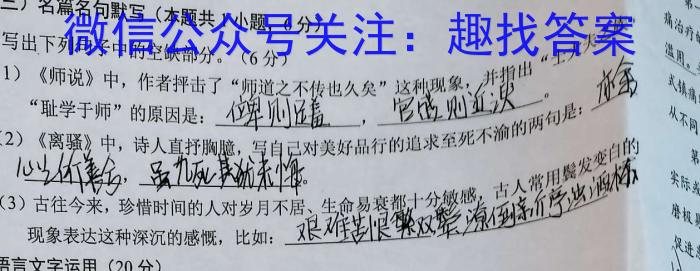 三）名篇名句默写（本题共1小题，6分）
微信公众号关注：趣找答案
写出下列句子中的空缺部分。（6分）
1）《师说》中，作者抨击了“师道之不传也久矣”这种现象，并指出“士大夫
“耻学于师”的原因是：位卑则足羞，官盛则近谀。
（2）《离骚》中，诗人直抒胸臆，写自己对美好品行的追求至死不渝的两句是：亦余
心之所善兮，虽九死其犹未悔。
（3）古往今来，珍惜时间的人对岁月不居、生命易衰都十分敏感，古人常用鬓发变白的
现象表达这种深沉的感慨，比如：艰难苦恨繁双鬓 潦倒新亭浊酒杯
语言文字运用（20分）
痛治疗
滥用。
式镇痛
从不同
第
实际
磨极
促进